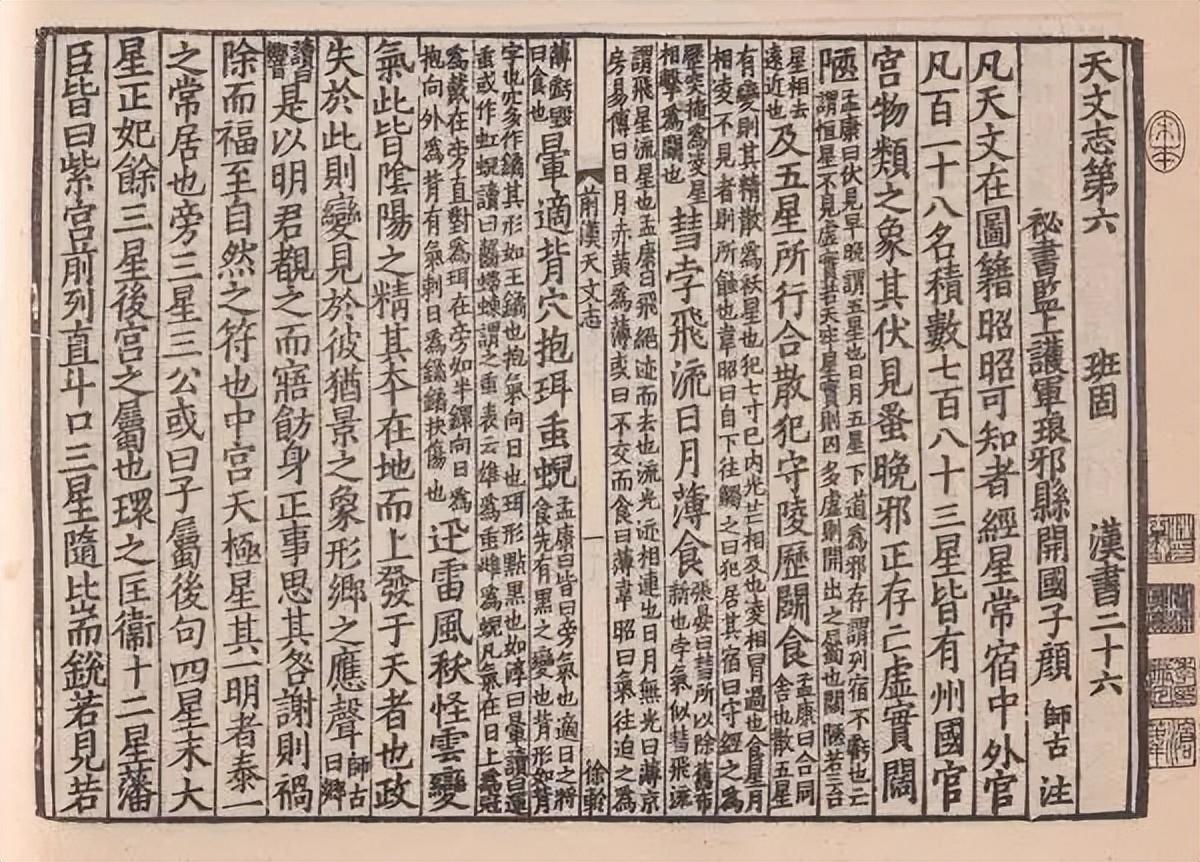 天文志第六 班固 漢書二十六
祕書監上護軍琅邪縣開國子顏 師古 注
凡天文在圖籍昭昭可知者經星常宿中外官
凡百一十八名積數七百八十三星皆有州國官
宮物類之象其伏見蚤晚邪正存亡虛實闊
陿孟康曰伏見早晚謂五星也日月五星下道為邪存謂列宿不虧也亡謂恒星不見虛實若天牢星實則囚多虛則開出之屬也闊陿若三台
星相去遠近也及五星所行合散犯守陵歷鬭食孟康曰合同舍也散五星
有變則其精散為祅星也犯七寸已內光芒相及也凌相冒過也食星月相凌不見者則所蝕也韋昭曰自下往觸之曰犯居其宿曰守經之為
歷突掩為凌星相擊為鬭也彗孛飛流日月薄食張晏曰彗所以除舊布新也孛氣似彗飛流
謂飛星流星也孟康曰飛絕迹而去也流光迹相連也日月無光曰薄京房易傳曰日月赤黃為薄或曰不交而食曰薄韋昭曰氣往迫之為
前漢天文志 一 徐軫
薄虧毀曰食也暈適背穴抱珥䖝蜺孟康曰皆日旁氣也適日之將食先有黑之變也背形如背
字也穴多作鐍其形如玉鐍也抱氣向日也珥形點黑也如淳曰暈讀曰運䖝或作虹蜺讀曰齧螮蝀謂之䖝表云雄為䖝雌為蜺凡氣在日上為冠
為戴在旁直對為珥在旁如半鐶向日為抱向外為背有氣刺日為鐍鐍抉傷也迅雷風祅怪雲變
氣此皆陰陽之精其本在地而上發于天者也政
失於此則變見於彼猶景之象形鄉之應聲師古曰鄉
讀曰響是以明君覩之而寤飭身正事思其咎謝則禍
除而福至自然之符也中宮天極星其一明者泰一
之常居也旁三星三公或曰子屬後句四星末大
星正妃餘三星後宮之屬也環之匡衞十二星藩
臣皆曰紫宮前列直斗口三星隨比耑銳若見若
宋本